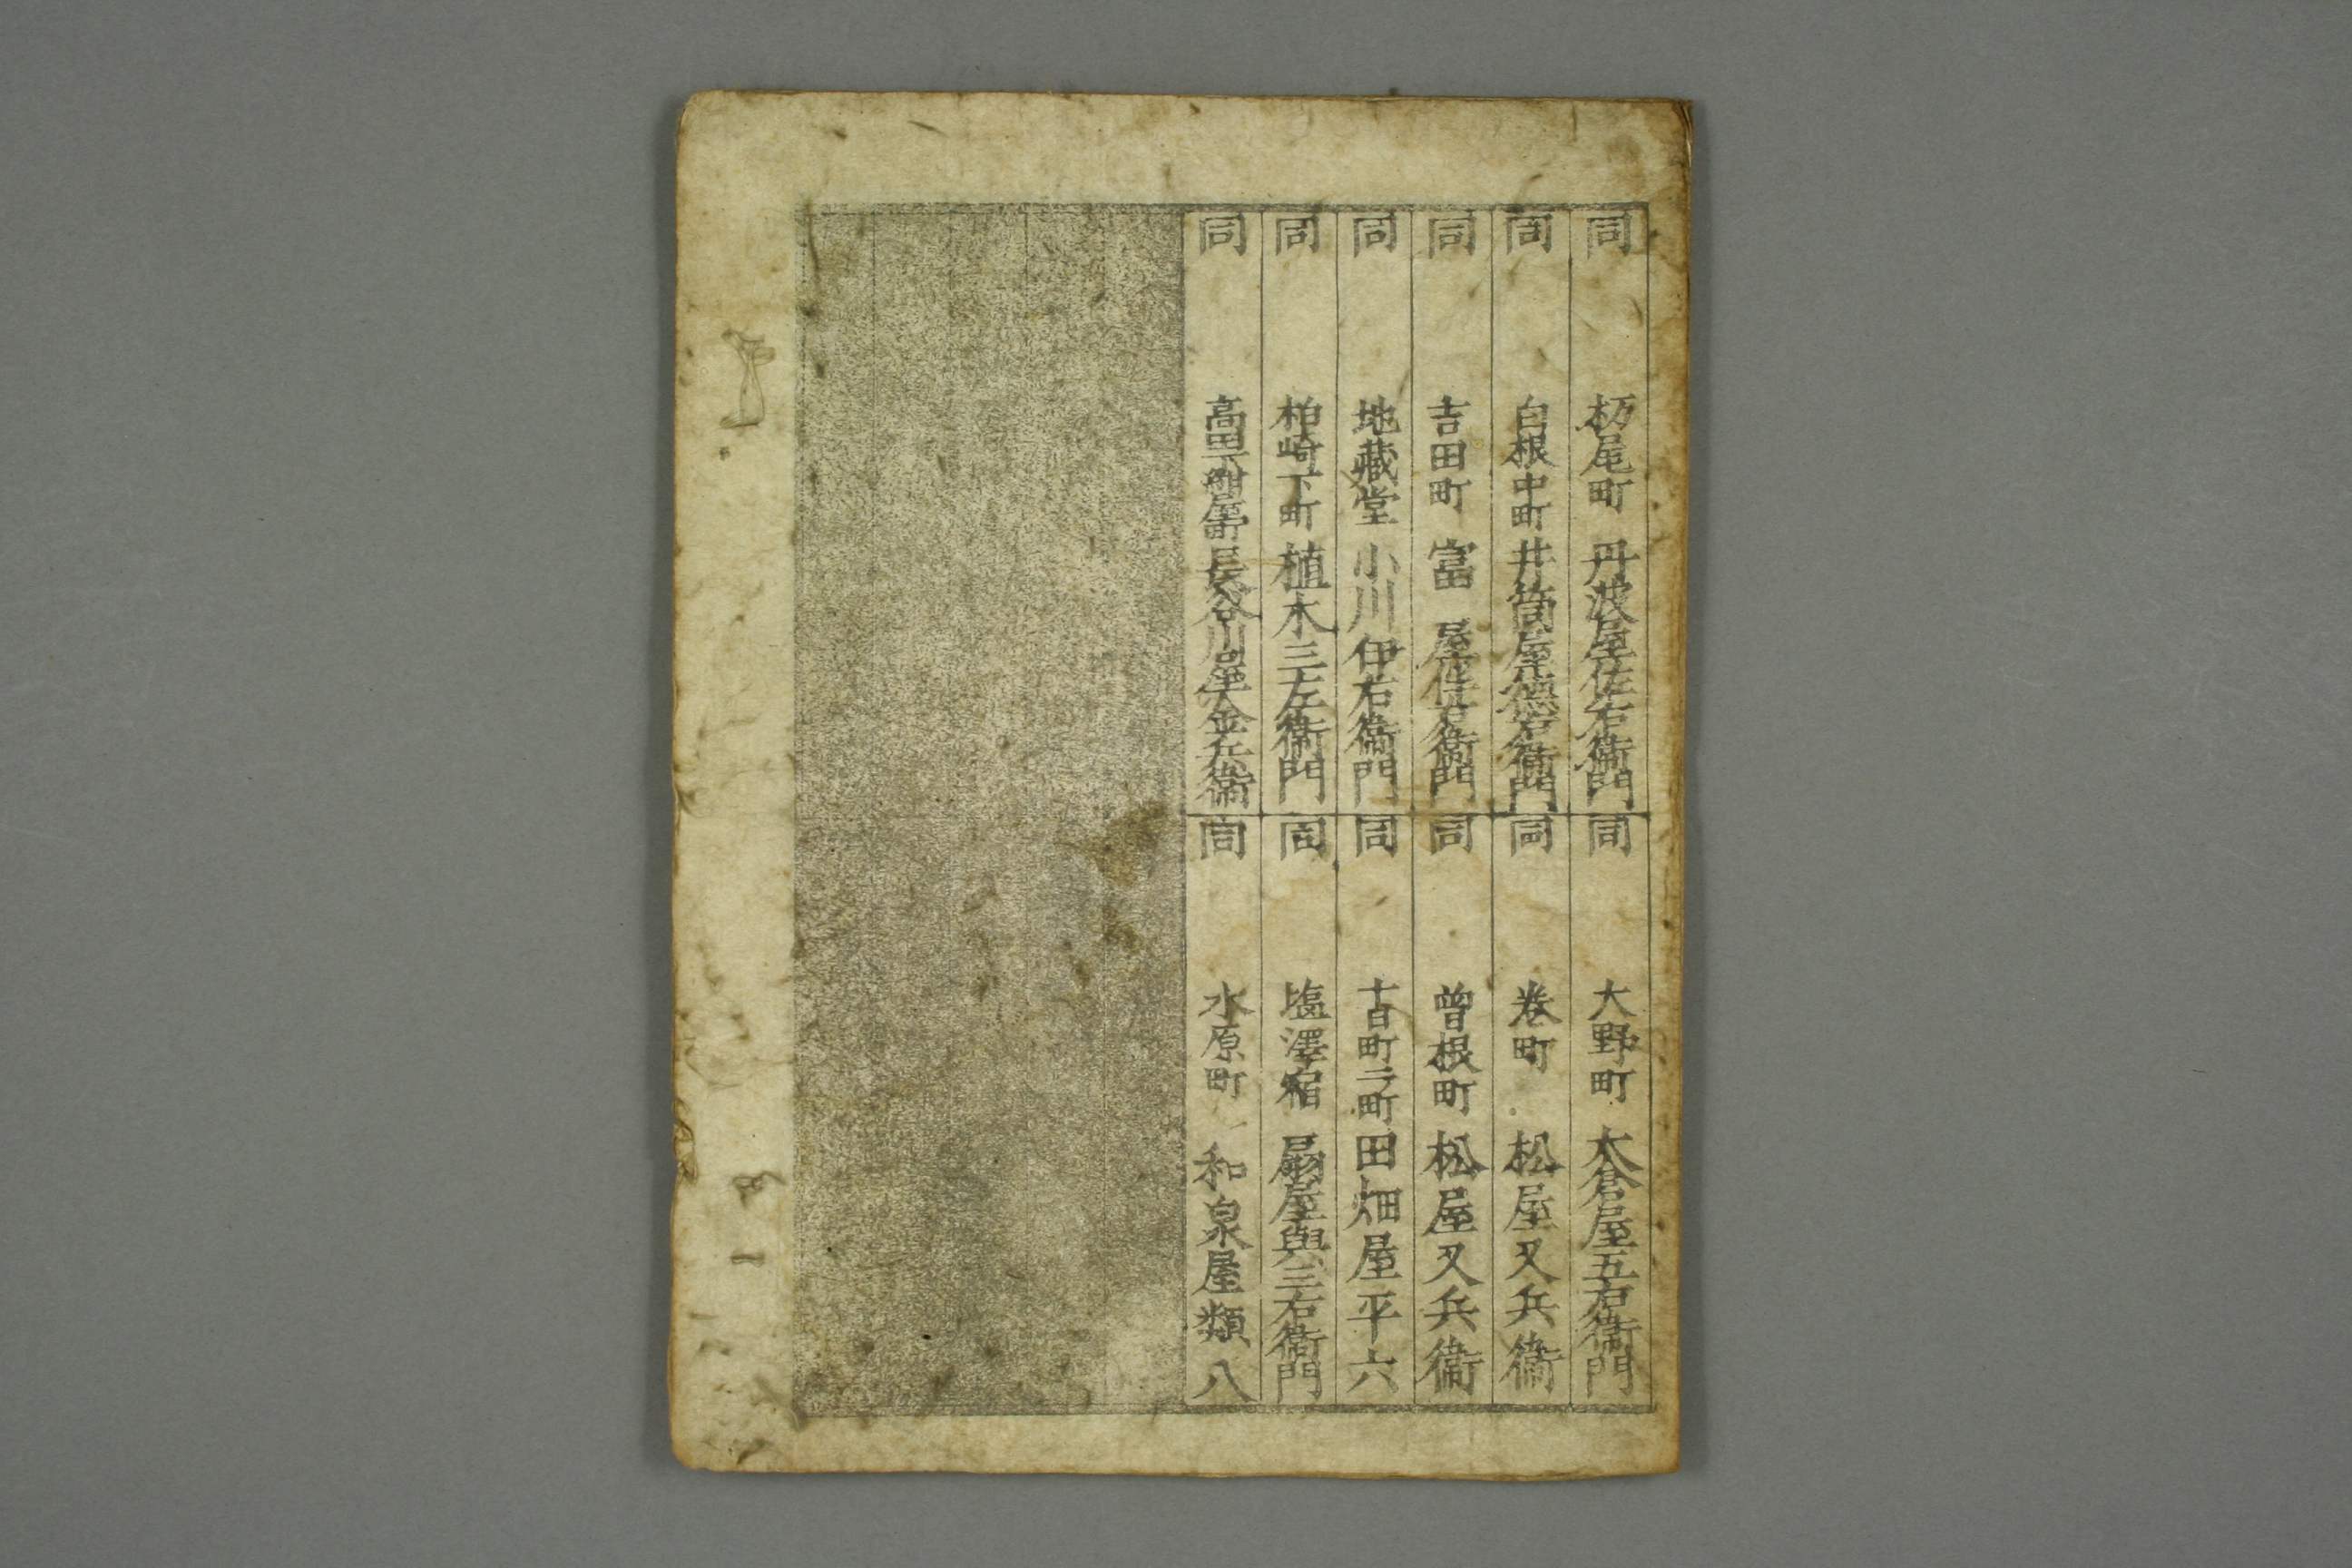 同 板尾町 丹波屋佐右衛門
同 白根中町 井筒屋徳右衛門
同 吉田町 富屋仕右衛門
同 地蔵堂 小川伊右衛門
同 柏崎下町 植木三左衛門
同 高田下紺屋町 長谷川屋金兵衛
同 大野町 大倉屋五右衛門
同 巻町 松屋又兵衛
同 曽根町 松屋又兵衛
同 十日町二町 田畑屋平六
同 塩澤宿 扇屋與三右衛門
同 水原町 和泉屋類八